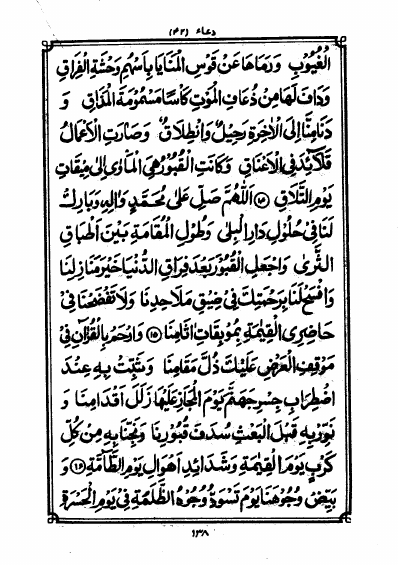 دعاء (۴۲)
الْغُيُوْبِ وَرَمَاهَا عَنْ قَوْسِ الْمَنَايَا بِاَسْهُمِ وَحْشَةِ الْفِرَاقِ
وَدَافَ لَهَا مِنْ ذُعَافِ الْمَوْتِ كَاْسًا مَسْمُوْمَةَ الْمَذَاقِ وَ
دَنَا مِنَّا اِلَى الْاٰخِرَةِ رَحِيْلٌ وَانْطِلَاقٌ وَصَارَتِ الْاَعْمَالُ
قَلَآئِدَ فِى الْاَعْنَاقِ وَكَانَتِ الْقُبُوْرُ هِىَ الْمَاْوٰى اِلٰى مِيْقَاتِ
يَوْمِ التَّلَاقِ (۱۴) اَللّٰهُمَّ صَلِّ عَلٰى مُحَمَّدٍ وَاٰلِهٖ وَبَارِكْ
لَنَا فِىْ حُلُوْلِ دَارِ الْبِلٰى وَطُوْلِ الْمُقَامَةِ بَيْنَ اَطْبَاقِ
الثَّرٰى وَاجْعَلِ الْقُبُوْرَ بَعْدَ فِرَاقِ الدُّنْيَا خَيْرَ مَنَازِلِنَا
وَافْسَحْ لَنَا بِرَحْمَتِكَ فِىْ ضِيْقِ مَلَاحِدِنَا وَلَا تَفْضَحْنَا فِىْ
حَاضِرِى الْقِيٰمَةِ بِمُوْبِقَاتِ اٰثَامِنَا (۱۵) وَارْحَمْ بِالْقُرْاٰنِ فِىْ
مَوْقِفِ الْعَرْضِ عَلَيْكَ ذُلَّ مَقَامِنَا وَثَبِّتْ بِهٖ عِنْدَ
اضْطِرَابِ جِسْرِ جَهَنَّمَ يَوْمَ الْمَجَازِ عَلَيْهَا زَلَلَ اَقْدَامِنَا وَ
نَوِّرْ بِهٖ قَبْلَ الْبَعْثِ سُدَفَ قُبُوْرِنَا وَنَجِّنَا بِهٖ مِنْ كُلِّ
كَرْبٍ يَوْمَ الْقِيٰمَةِ وَشَدَآئِدِ اَهْوَالِ يَوْمِ الطَّآمَّةِ (۱۶) وَ
بَيِّضْ وُجُوْهَنَا يَوْمَ تَسْوَدُّ وُجُوْهُ الظَّلَمَةِ فِىْ يَوْمِ الْحَسْرَةِ
۱۳۸